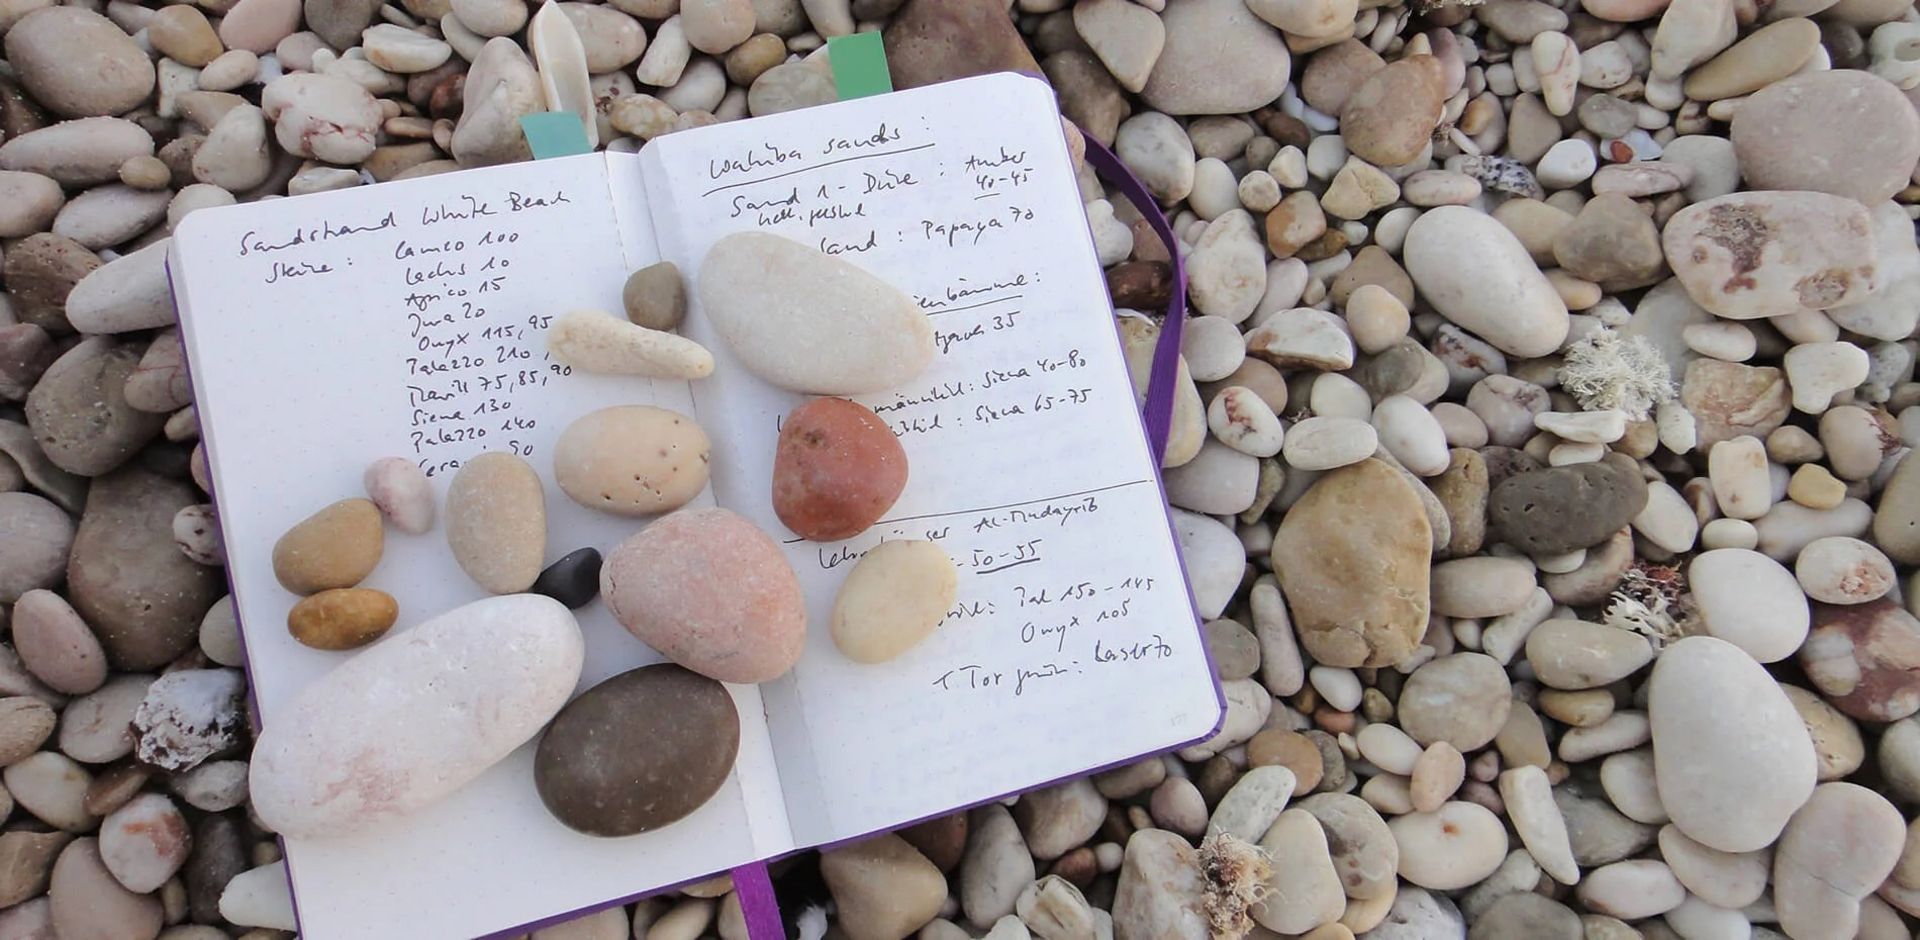 Sandstrand White Beach
Steine: Cameo 100
Lachs 10
Aprico 15
Jura 20
Onyx 115, 95
Palazzo 210,
Mavill 75, 85, 90
Siena 130
Palazzo 140
90
Wahiba Sands:
Sand 1 - Düne: Amber
40-45
hell,
Sand: Papaya 70
35
männlich: Siena 40-80
: Siena 65-75
Al-Mudayrib
50-55
: Pal 150-145
Onyx 105
Tor grün: Laser 70
177